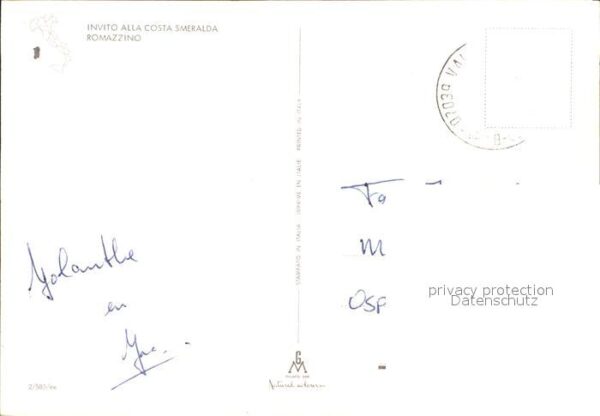 INVITO ALLA COSTA SMERALDA
ROMAZZINO
STAMPATO IN ITALIA IMPRIMÉ EN ITALIE PRINTED IN ITALY
07039 VAL
Fa
M
OSP
privacy protection
Datenschutz
Yolanthe
en
GM
2/583/ee